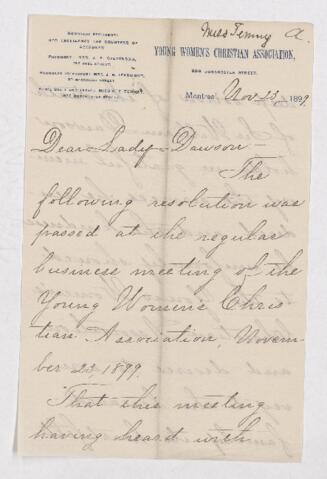 Miss Tenny A.
YOUNG WOMEN'S CHRISTIAN ASSOCIATION,
Montreal Nov 23 1899
Dear Lady Dawson –
The
following resolution was
passed at the regular
business meeting of the
Young Women's Chris
tian Association, Novem-
ber 23, 1899.
That this meeting
having heard with